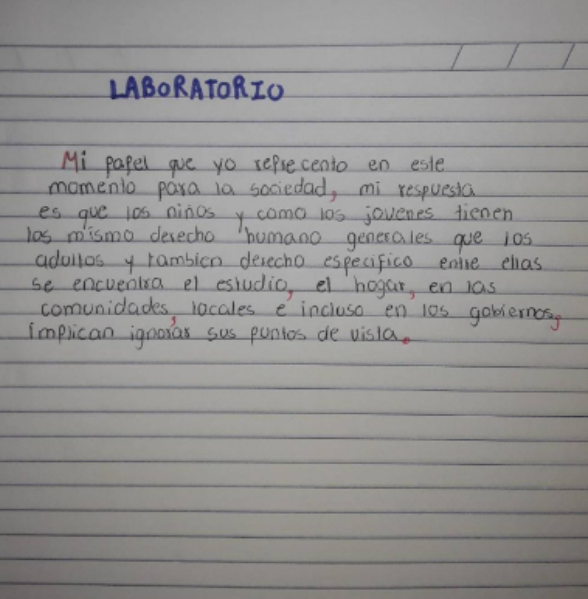 LABORATORIO
Mi papel que yo reprecento en este
momento para la sociedad, mi respuesta
es que los niños y como los jovenes tienen
los mismo derecho humano generales que los
adultos y tambien derecho especifico entre ellas
se encuentra el estudio, el hogar, en las
comunidades, locales e incluso en los gobiernos,
implican ignorar sus puntos de vista.